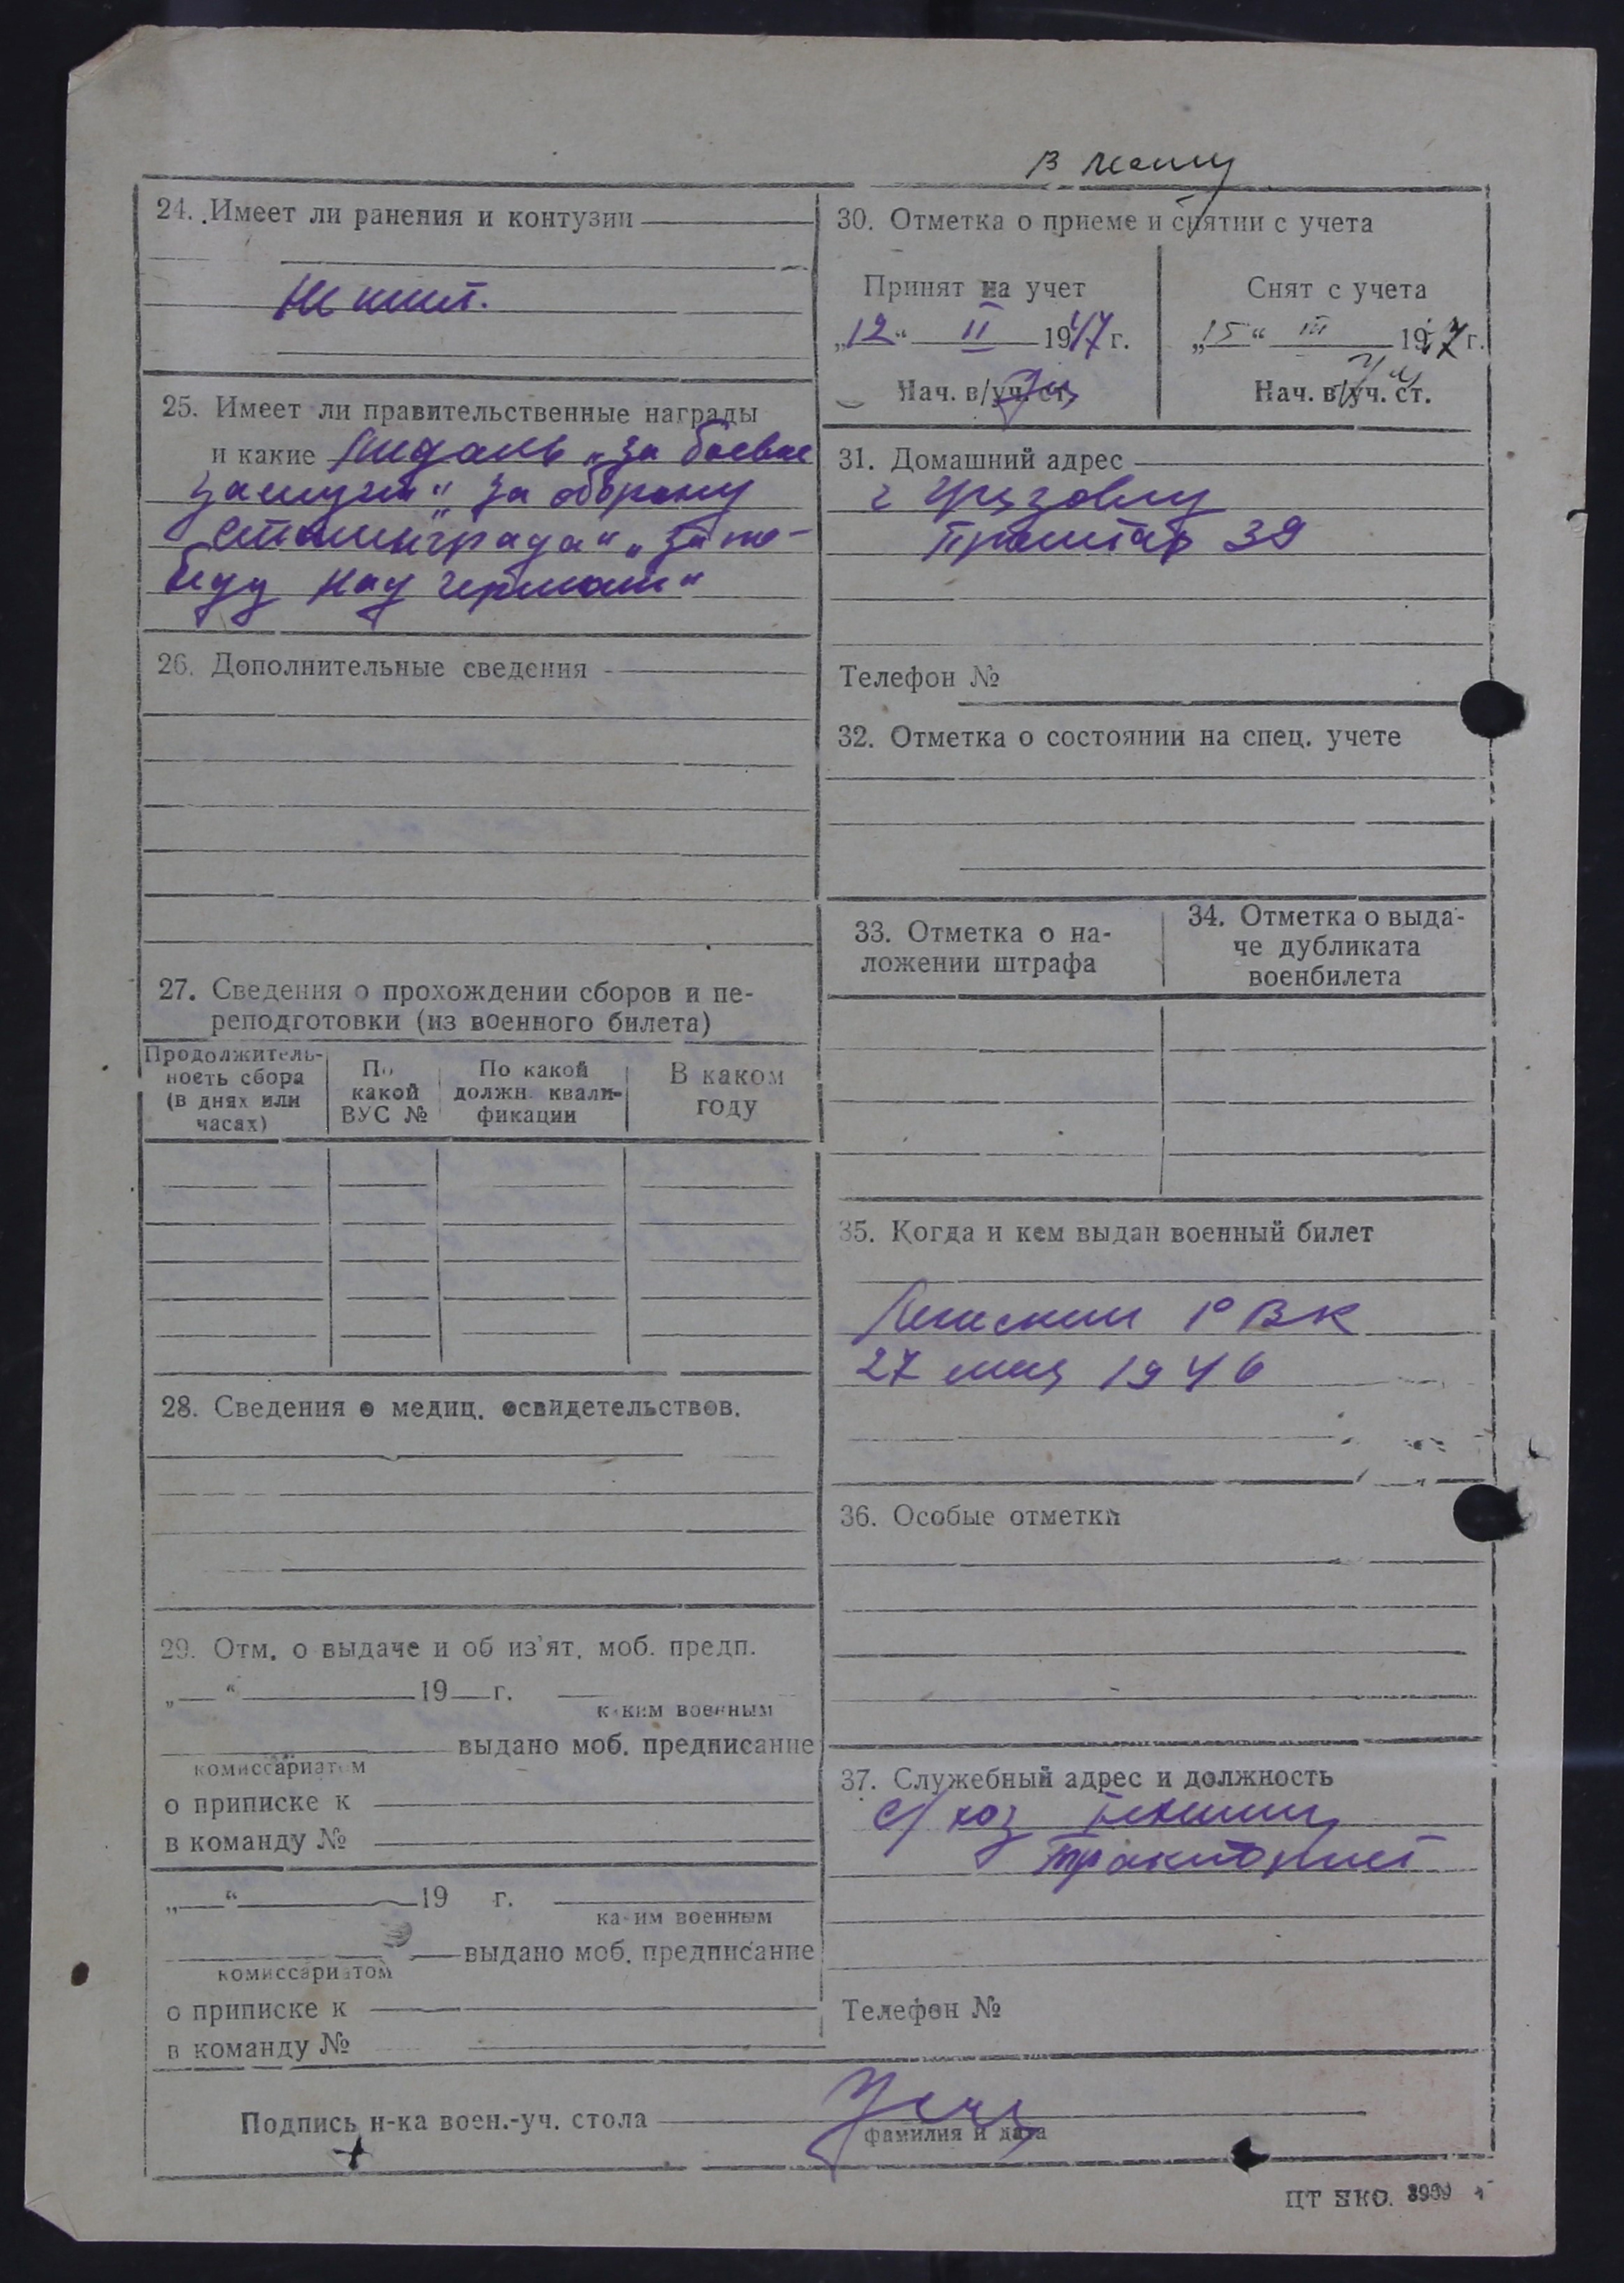 24. Имеет ли ранения и контузии
не имеет.
25. Имеет ли правительственные награды
и какие Медаль „за боевые
заслуги“ „за оборону
Сталинграда“ „за по-
беду над Германи“
26. Дополнительные сведения
27. Сведения о прохождении сборов и пе-
реподготовки (из военного билета)
Продолжитель-
ность сбора
(в днях или
часах)
По
какой
ВУС №
По какой
должн. квали-
фикации
В каком
году
28. Сведения о медиц. освидетельствов.
29. Отм. о выдаче и об из'ят. моб. предп.
„ “ 19 г.
каким военным
выдано моб. предписание
комиссариатом
о приписке к
в команду №
„ “ 19 г.
каким военным
выдано моб. предписание
комиссариатом
о приписке к
в команду №
30. Отметка о приеме и снятии с учета
Принят на учет
„12“ II 1947 г.
Нач. в/уч. ст.
Снят с учета
„15“ III 1947 г.
Нач. в/уч. ст.
31. Домашний адрес
г
39
Телефон №
32. Отметка о состоянии на спец. учете
33. Отметка о на-
ложении штрафа
34. Отметка о выда-
че дубликата
военбилета
35. Когда и кем выдан военный билет
РВК
27 мая 1946
36. Особые отметки
37. Служебный адрес и должность
с/хоз
тракторист
Телефон №
Подпись н-ка воен.-уч. стола
фамилия и дата
ЦТ НКО. 3909